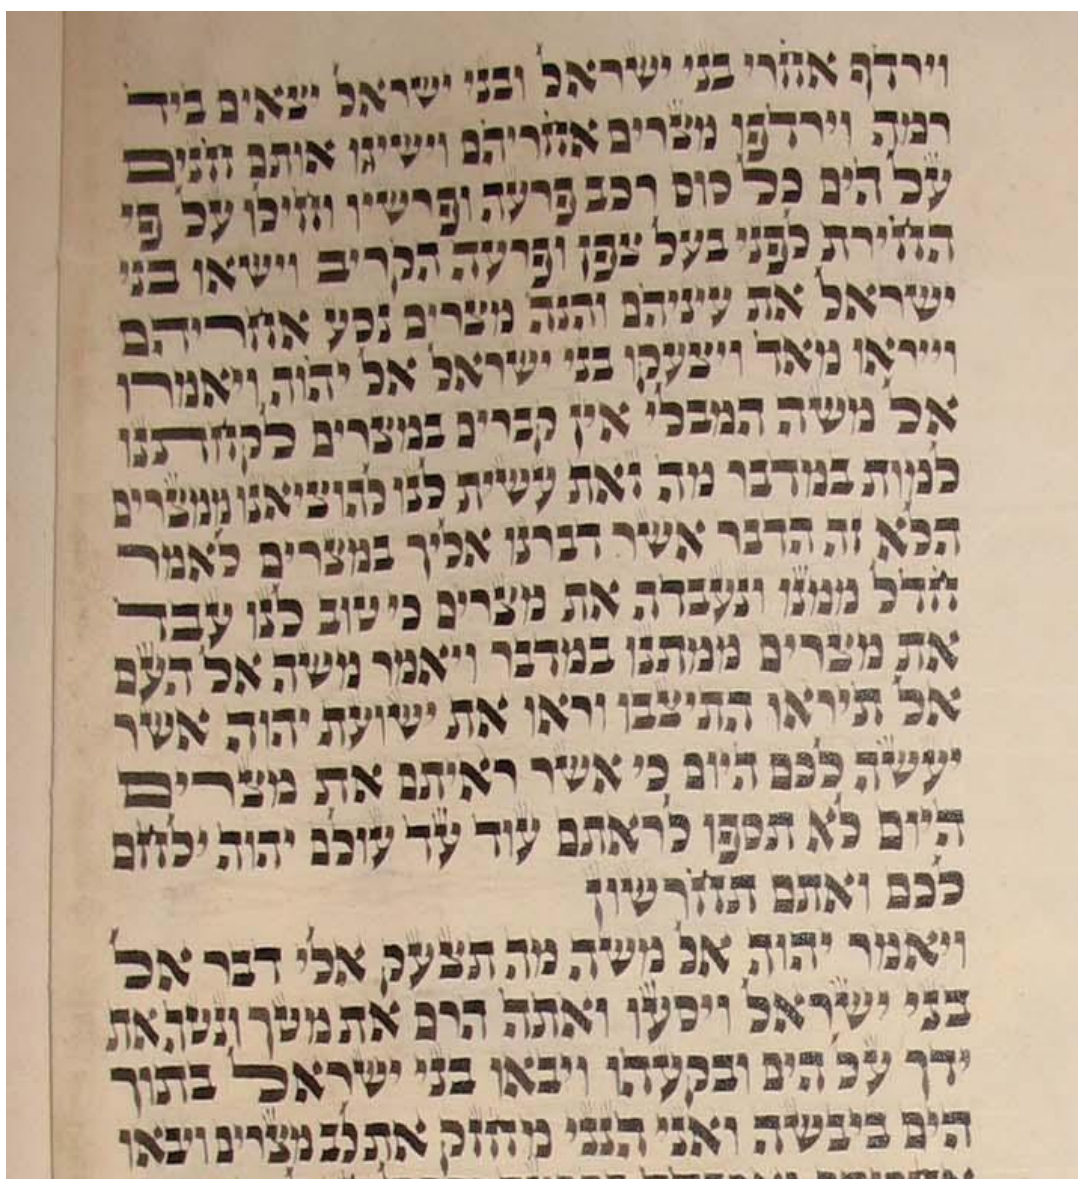 וירדף אחרי בני ישראל ובני ישראל יצאים ביד
רמה וירדפו מצרים אחריהם וישיגו אותם חנים
על הים כל סוס רכב פרעה ופרשיו וחילו על פי
החירת לפני בעל צפן ופרעה הקריב וישאו בני
ישראל את עיניהם והנה מצרים נסע אחריהם
וייראו מאד ויצעקו בני ישראל אל יהוה ויאמרו
אל משה המבלי אין קברים במצרים לקחתנו
למות במדבר מה זאת עשית לנו להוציאנו ממצרים
הלא זה הדבר אשר דברנו אליך במצרים לאמר
חדל ממנו ונעבדה את מצרים כי טוב לנו עבד
את מצרים ממתנו במדבר ויאמר משה אל העם
אל תיראו התיצבו וראו את ישועת יהוה אשר
יעשה לכם היום כי אשר ראיתם את מצרים
היום לא תספו לראתם עוד עד עולם יהוה ילחם
לכם ואתם תחרשון
ויאמר יהוה אל משה מה תצעק אלי דבר אל
בני ישראל ויסעו ואתה הרם את מטך ונטה את
ידך על הים ובקעהו ויבאו בני ישראל בתוך
הים ביבשה ואני הנני מחזק את לב מצרים ויבאו